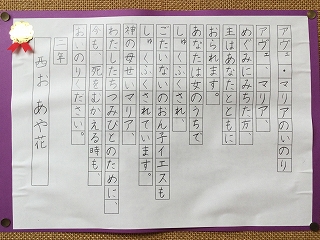 アヴェ・マリアのいのり
アヴェ マリア、
めぐみにみちた方、
主はあなたとともに
おられます。
あなたは女のうちで
しゅくふくされ、
ごたいないのおん子イエスも
しゅくふくされています。
神の母せいマリア、
わたしたちつみびとのために、
今も、死をむかえる時も、
おいのりください。
二年
西お あや花